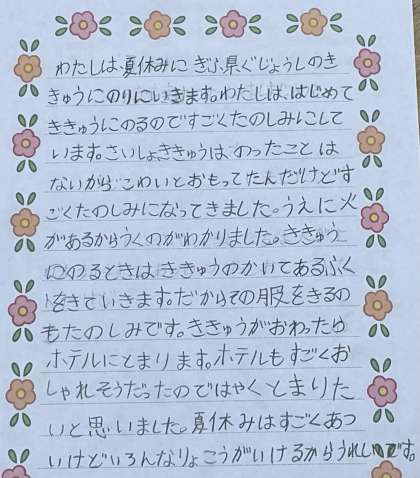 わたしは、夏休みに ぎふ県ぐじょうしのき
きゅうにのりにいきます。わたしは、はじめて
ききゅうにのるのですごくたのしみにして
います。さいしょききゅうは、のったことは
ないから こわいとおもってたんだけどす
ごくたのしみになってきました。うえに火
があるからうくのがわかりました。ききゅう
にのるときは ききゅうのかいてあるふく
をきていきます。だからその服をきるの
もたのしみです。ききゅうがおわったら
ホテルにとまります。ホテルもすごくお
しゃれそうだったのではやくとまりた
いと思いました。夏休みはすごくあつ
いけどいろんなりょこうがいけるからうれしいです。